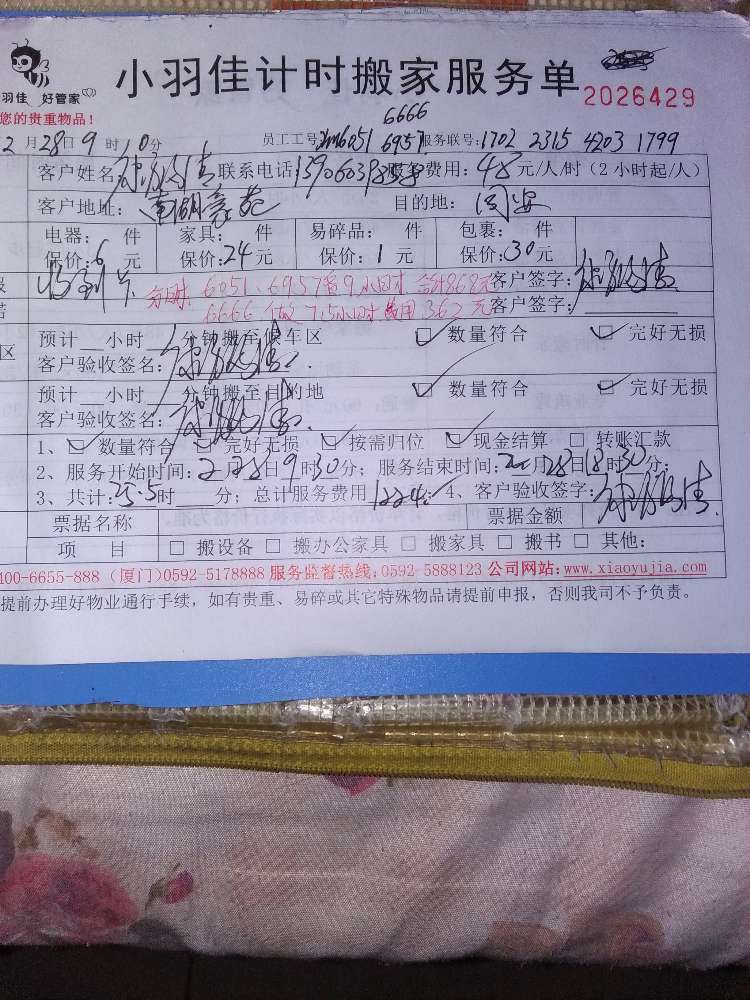 小羽佳计时搬家服务单
2026429
羽佳 好管家
您的贵重物品！
6666
2月28日9时10分 员工工号: xm6051 6957 服务联号:1702 2315 4203 1799
客户姓名 联系电话 服务费用: 48元/人/时（2小时起/人）
客户地址: 南湖豪苑 目的地: 同安
电器: 件 家具: 件 易碎品: 件 包裹: 件
保价:6元 保价:24元 保价:1元 保价:30元
收到卡 分时: 6051、6957各9小时 合计868元 客户签字:
6666 做7.5小时 费用362元 客户签字:
区 预计 小时 分钟搬至候车区 数量符合 完好无损
客户验收签名:
预计 小时 分钟搬至目的地 数量符合 完好无损
客户验收签名:
1、 数量符合 完好无损 按需归位 现金结算 转账汇款
2、服务开始时间:2月28日9时30分; 服务结束时间:2月28日18时30分;
3、共计:25.5时 分; 总计服务费用1224; 4、客户验收签字:
票据名称 票据金额
项 目 搬设备 搬办公家具 搬家具 搬书 其他:
400-6655-888（厦门）0592-5178888 服务监督热线:0592-5888123 公司网站:www.xiaoyujia.com
提前办理好物业通行手续，如有贵重、易碎或其它特殊物品请提前申报，否则我司不予负责。